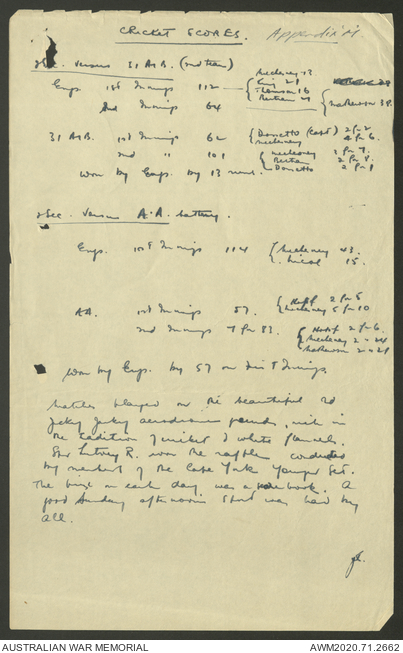 CRICKET SCORES. Appendix
Sec. versus 31 A.O.B. (2nd team)
Engs 1st Innings 112 — { Mulveney 13
King 21
Thomson 16
2nd Innings 64
31 AOB. 1st Innings 62 { Donetto (Capt) 2 for 2
Mulveney
2nd " 101 { Mulveney 2 for 7.
2 for 8.
Donetto 2 for 1
won by Engs. by 13 runs.
Sec. versus A.A. battery.
Engs. 1st Innings 114 { Mulveney 43.
Nicol 15.
AA. 1st Innings 57. { 2 for 5
Mulveney 5 for 10
2nd Innings 7 for 83. { 2 for 6.
Mulveney 2 - 24
2 - 21
won by Engs. by 57 on 1st Innings
Matches played on the beautiful
aerodrome grounds, with in
the tradition of cricket & white flannels.
Spr R. won the raffle conducted
by members of the Cape York Younger Set.
The on each day was a . A
good Sunday afternoons sport was had by
all.
AUSTRALIAN WAR MEMORIAL AWM2020.71.2662